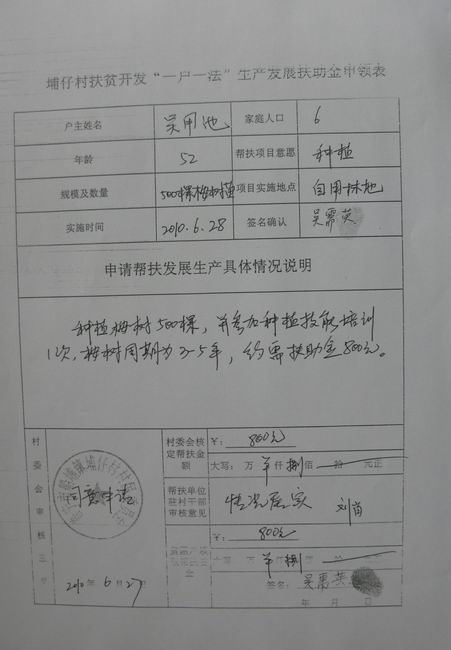 埔仔村扶贫开发“一户一法”生产发展扶助金申领表
户主姓名 吴用池 家庭人口 6
年龄 52 帮扶项目意愿 种植
规模及数量 500棵梅树苗 项目实施地点 自用林地
实施时间 2010.6.28 签名确认 吴需英
申请帮扶发展生产具体情况说明
种植梅树500棵，并参加种植技能培训
1次，梅树周期为3-5年，约需扶助金800元。
村委会审核
同意申请
2010年6月27
村委会核定帮扶金额
¥： 800元
大写： 万 羊仟捌佰 拾 元正
帮扶单位驻村干部审核意见
情况属实
¥： 800元
羊 捌
签名： 吴需英
年 月 日